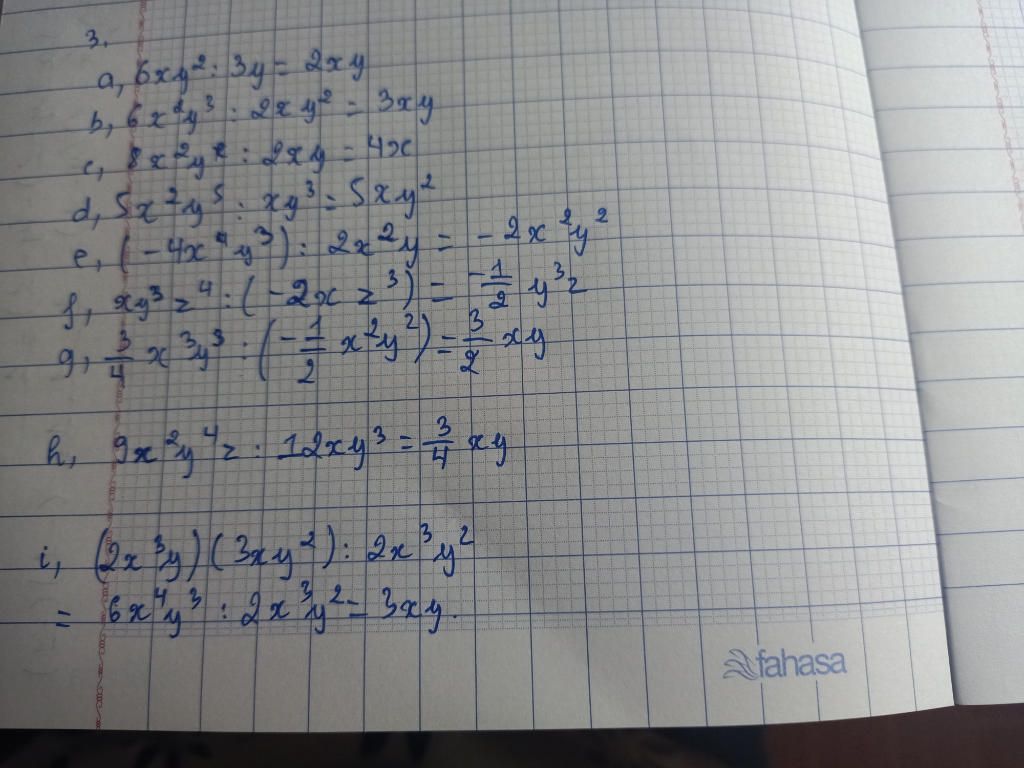 3.
a, 6xy² : 3y = 2xy
b, 6x²y³ : 2xy² = 3xy
c, 8x²y² : 2xy = 4x
d, 5x²y⁵ : xy³ = 5xy²
e, (-4x⁴y³) : 2x²y = -2x²y²
f, xy³z⁴ : (-2xz³) = -1/2 y³z
g, 3/4 x³y³ : (-1/2 x²y²) = 3/2 xy
h, 9x²y⁴z : 12xy³ = 3/4 xy
i, (2x³y)(3xy²) : 2x³y²
= 6x⁴y³ : 2x³y² = 3xy.
fahasa